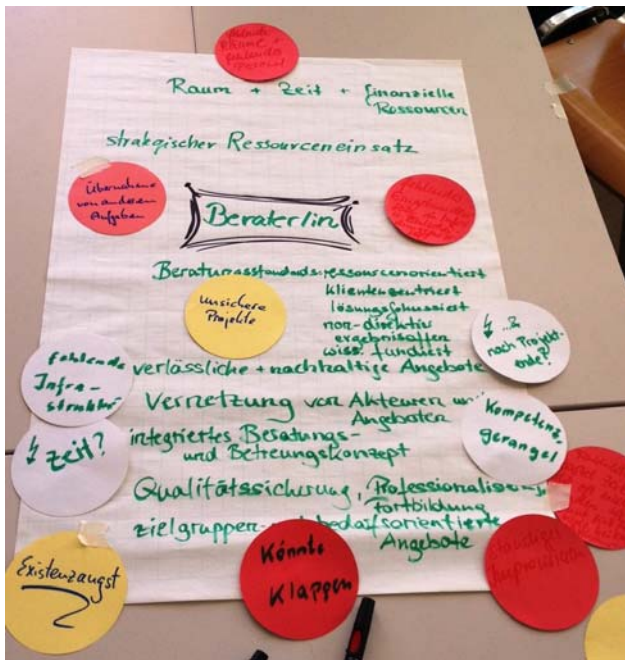 fehlende
Räume +
fehlendes
Personal
Raum + Zeit + finanzielle
Ressourcen
strategischer Ressourceneinsatz
Übernahme
von anderen
Aufgaben
Berater/in
fehlendes
Beratungsstandards: ressourcenorientiert
klientenzentriert
lösungsfokussiert
non-direktiv
ergebnisoffen
wiss. fundiert
unsichere
Projekte
nach Projekt-
ende?
fehlende
Infra-
struktur
verlässliche + nachhaltige Angebote
Vernetzung von Akteuren und
Angeboten
Kompetenz-
gerangel
Zeit?
integriertes Beratungs-
und Betreungskonzept
Qualitätssicherung, Professionalisierung,
Fortbildung
zielgruppen- bedarfsorientierte
Angebote
Existenzangst
Könnte
Klappen
ständiges
Improvisieren